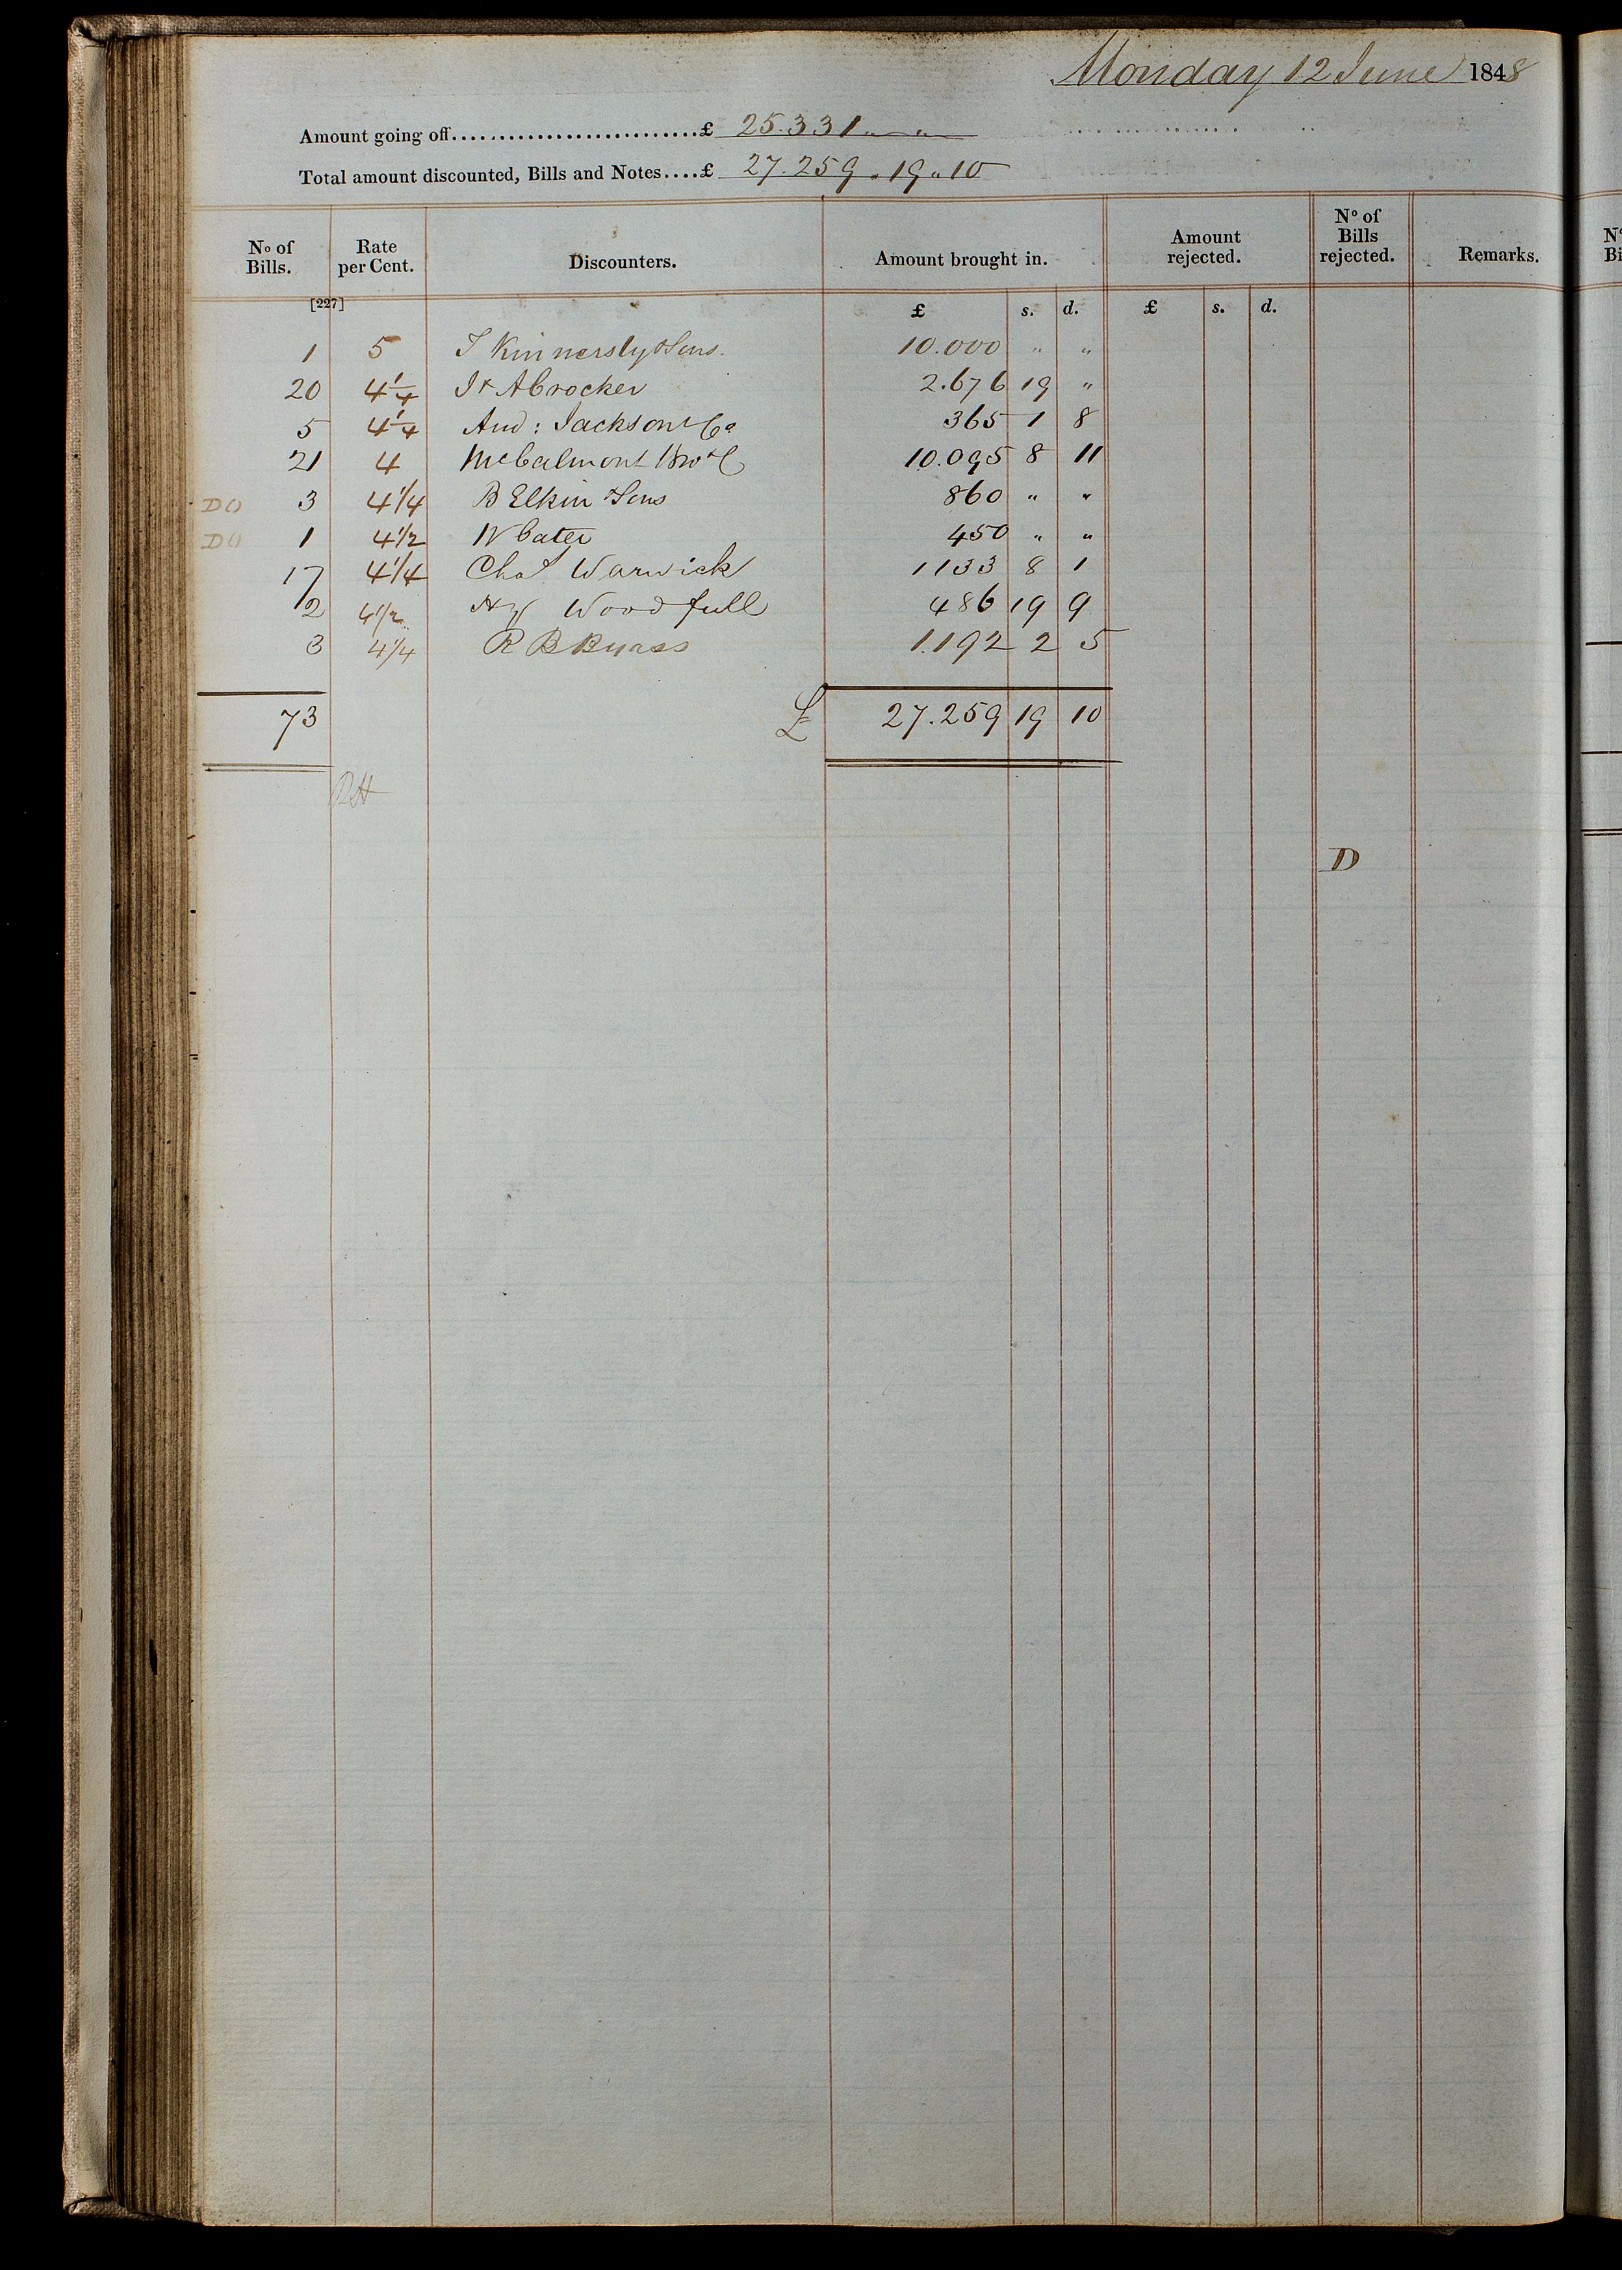 Monday 12 June 1848
Amount going off..........................£ 25.331 " "
Total amount discounted, Bills and Notes....£ 27.259 " 19 " 10
No of Bills. Rate per Cent. Discounters. Amount brought in. Amount rejected. No of Bills rejected. Remarks.
[227] £ s. d. £ s. d.
1 5 T Kinnersly & Sons. 10.000 " "
20 4 1/4 J & A Crocker 2.676 19 "
5 4 1/4 And: Jackson & Co 365 1 8
21 4 McCalmont Bro & C 10.095 8 11
DO 3 4 1/4 B Elkin & Sons 860 " "
DO 1 4 1/2 W Cater 450 " "
17 4 1/4 Chas Warwick 1133 8 1
2 4 1/2 Hy Woodfull 486 19 9
3 4 1/4 R B Byass 1.192 2 5
73 £ 27.259 19 10
RH
D